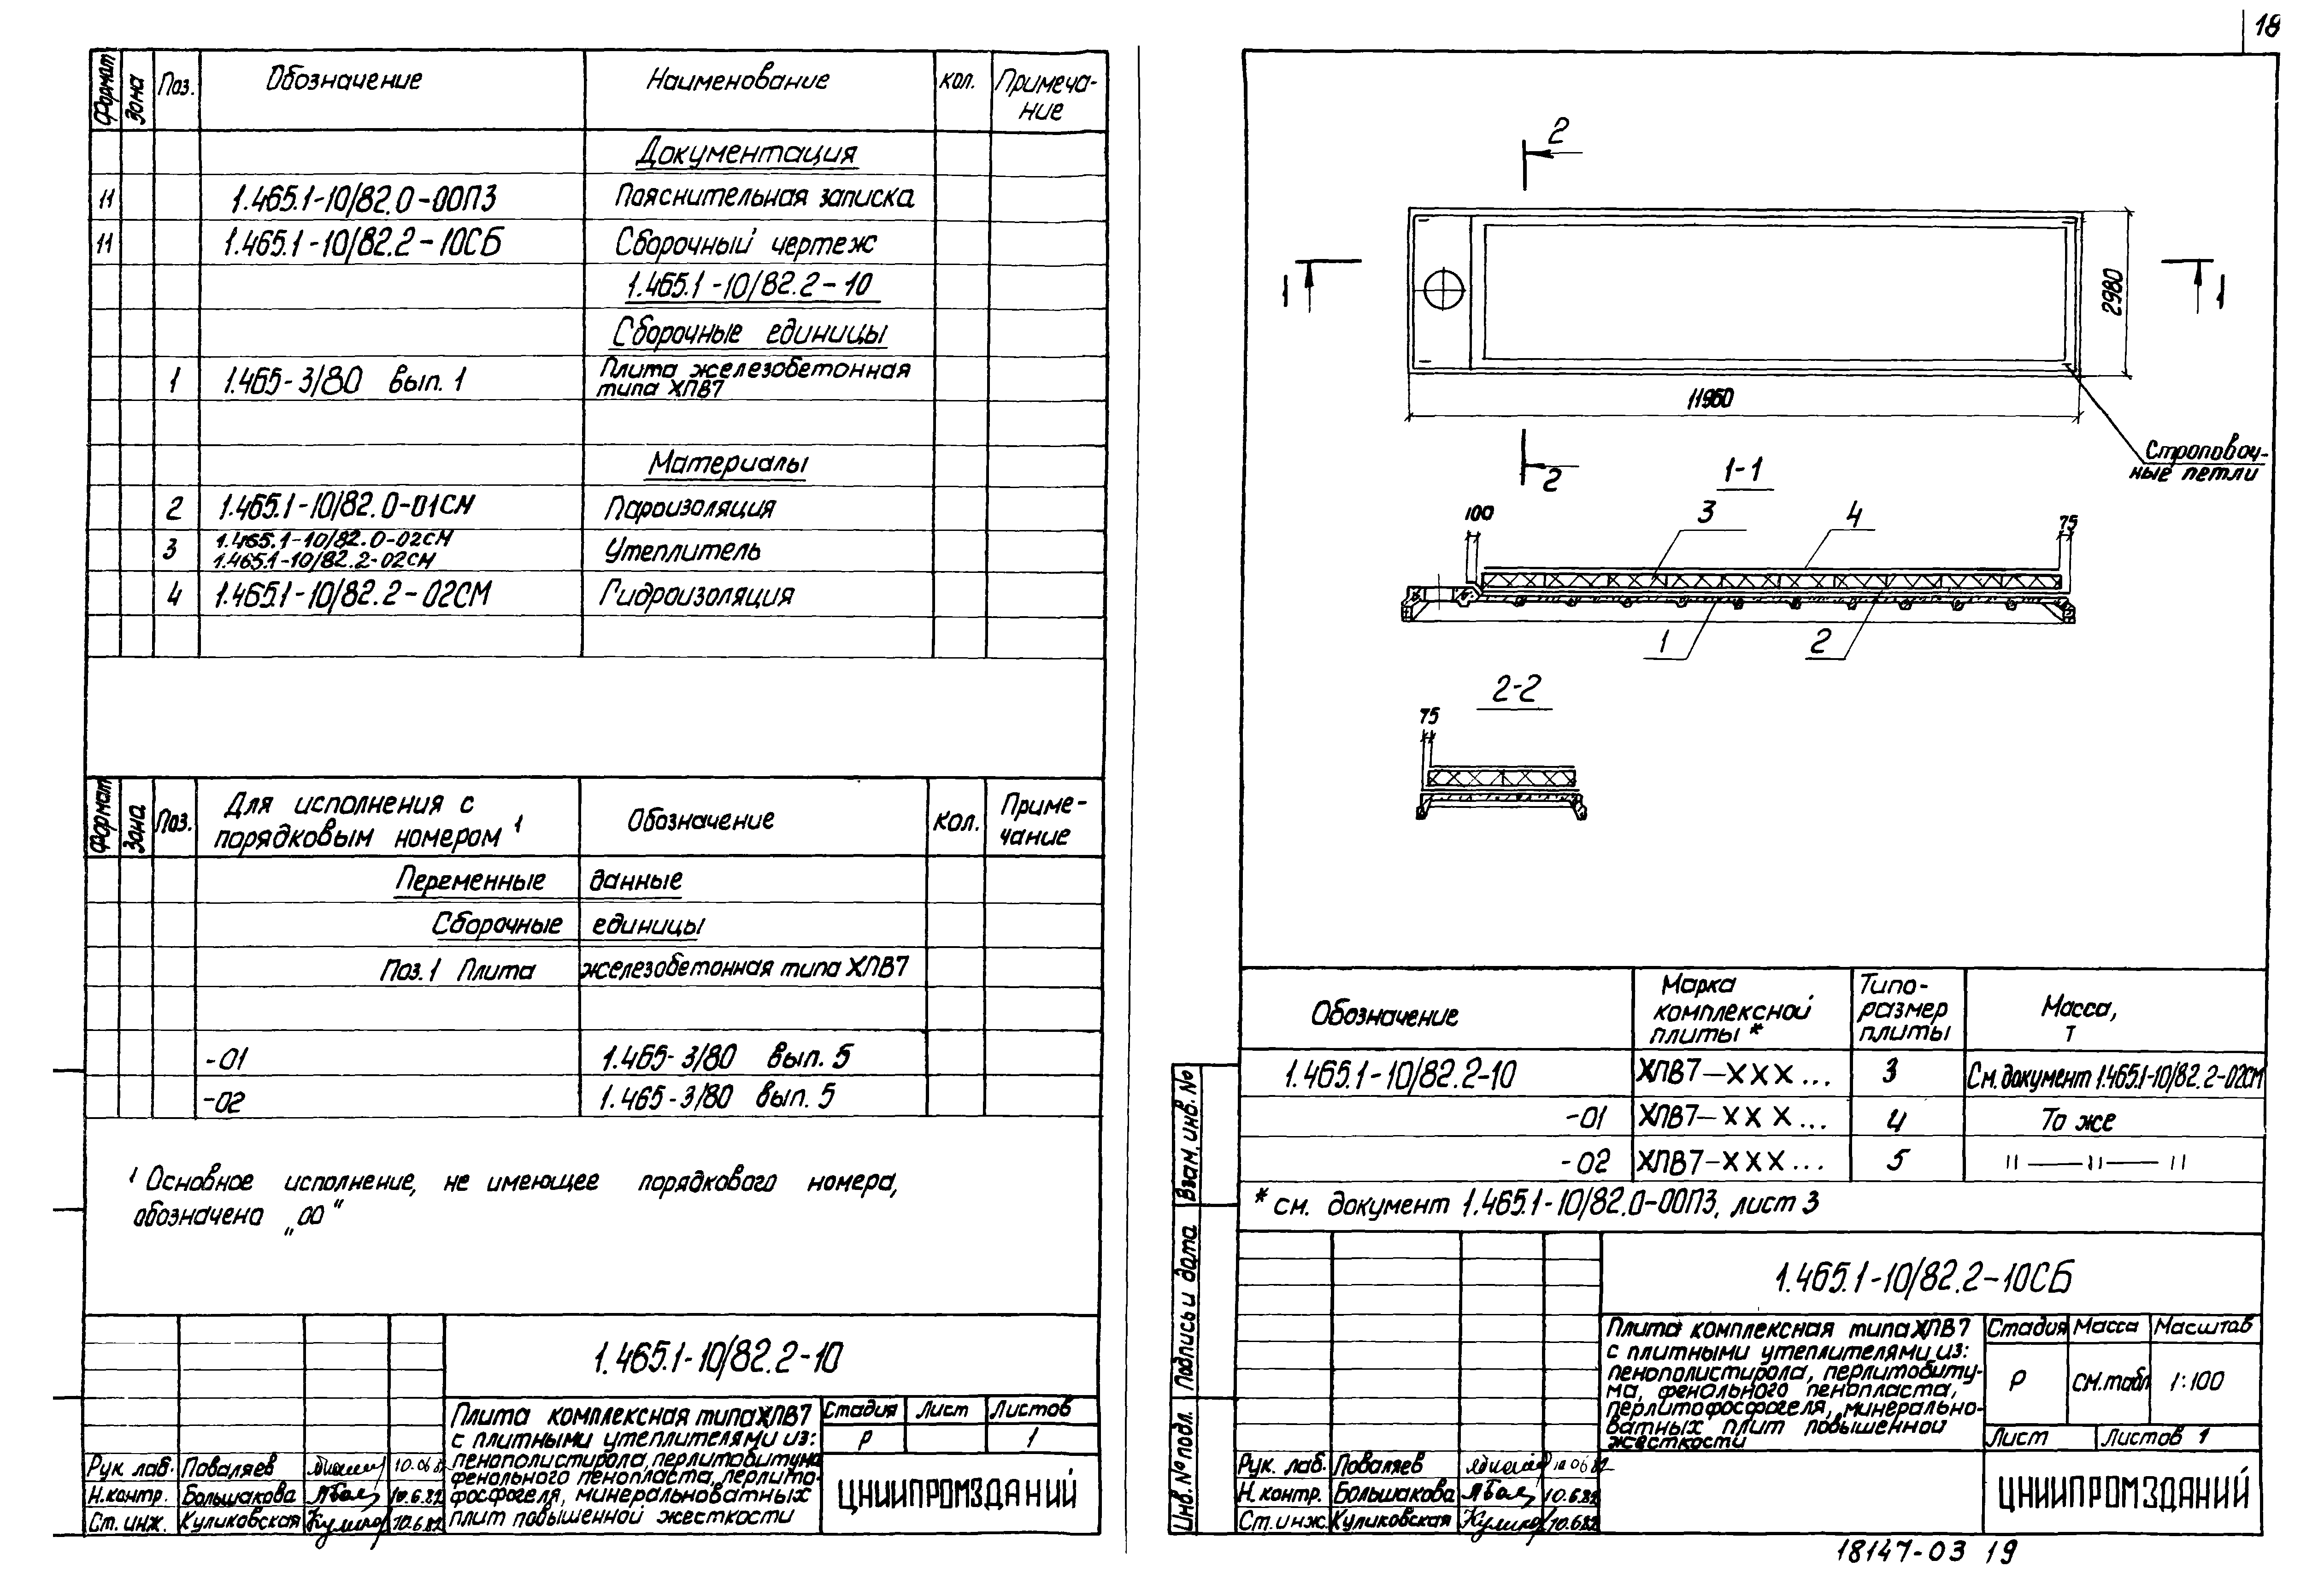 18
Формат Зона Поз. Обозначение Наименование кол. Примеча-
ние
Документация
11 1.465.1-10/82.0-00ПЗ Пояснительная записка
11 1.465.1-10/82.2-10СБ Сборочный чертеж
1.465.1-10/82.2-10
Сборочные единицы
1 1.465-3/80 вып. 1 Плита железобетонная
типа ХПВ7
Материалы
2 1.465.1-10/82.0-01СМ Пароизоляция
3 1.465.1-10/82.0-02СМ Утеплитель
1.465.1-10/82.2-02СМ
4 1.465.1-10/82.2-02СМ Гидроизоляция
Формат Зона Поз. Для исполнения с
порядковым номером 1 Обозначение кол. Приме-
чание
Переменные данные
Сборочные единицы
Поз. 1 Плита железобетонная типа ХПВ7
-01 1.465-3/80 вып. 5
-02 1.465-3/80 вып. 5
1 Основное исполнение, не имеющее порядкового номера,
обозначено „00“
1.465.1-10/82.2-10
Плита комплексная типа ХПВ7
с плитными утеплителями из:
пенополистирола, перлитобитума
фенольного пенопласта, перлито-
фосфогеля, минераловатных
плит повышенной жесткости
Стадия Лист Листов
Р 1
ЦНИИПРОМЗДАНИЙ
Рук. лаб. Поваляев 10.06.82
Н.контр. Большакова 10.6.82
Ст. инж. Куликовская 10.6.82
2
1 1
2980
11960
Строповоч-
ные петли
2
1-1
100 3 4 75
1 2
2-2
75
Обозначение Марка
комплексной
плиты * Типо-
размер
плиты Масса,
т
1.465.1-10/82.2-10 ХПВ7-ХХХ... 3 См. документ 1.465.1-10/82.2-02СМ
-01 ХПВ7-ХХХ... 4 То же
-02 ХПВ7-ХХХ... 5 11 — 11 — 11
* см. документ 1.465.1-10/82.0-00ПЗ, лист 3
Взам. инв. №
Подпись и дата
Инв. № подл.
1.465.1-10/82.2-10СБ
Плита комплексная типа ХПВ7
с плитными утеплителями из:
пенополистирола, перлитобиту-
ма, фенольного пенопласта,
перлитофосфогеля, минерально-
ватных плит повышенной
жесткости
Стадия Масса Масштаб
Р см. табл 1:100
Лист Листов 1
ЦНИИПРОМЗДАНИЙ
Рук. лаб. Поваляев 10.06.82
Н.контр. Большакова 10.6.82
Ст. инж. Куликовская 10.6.82
18147-03 19